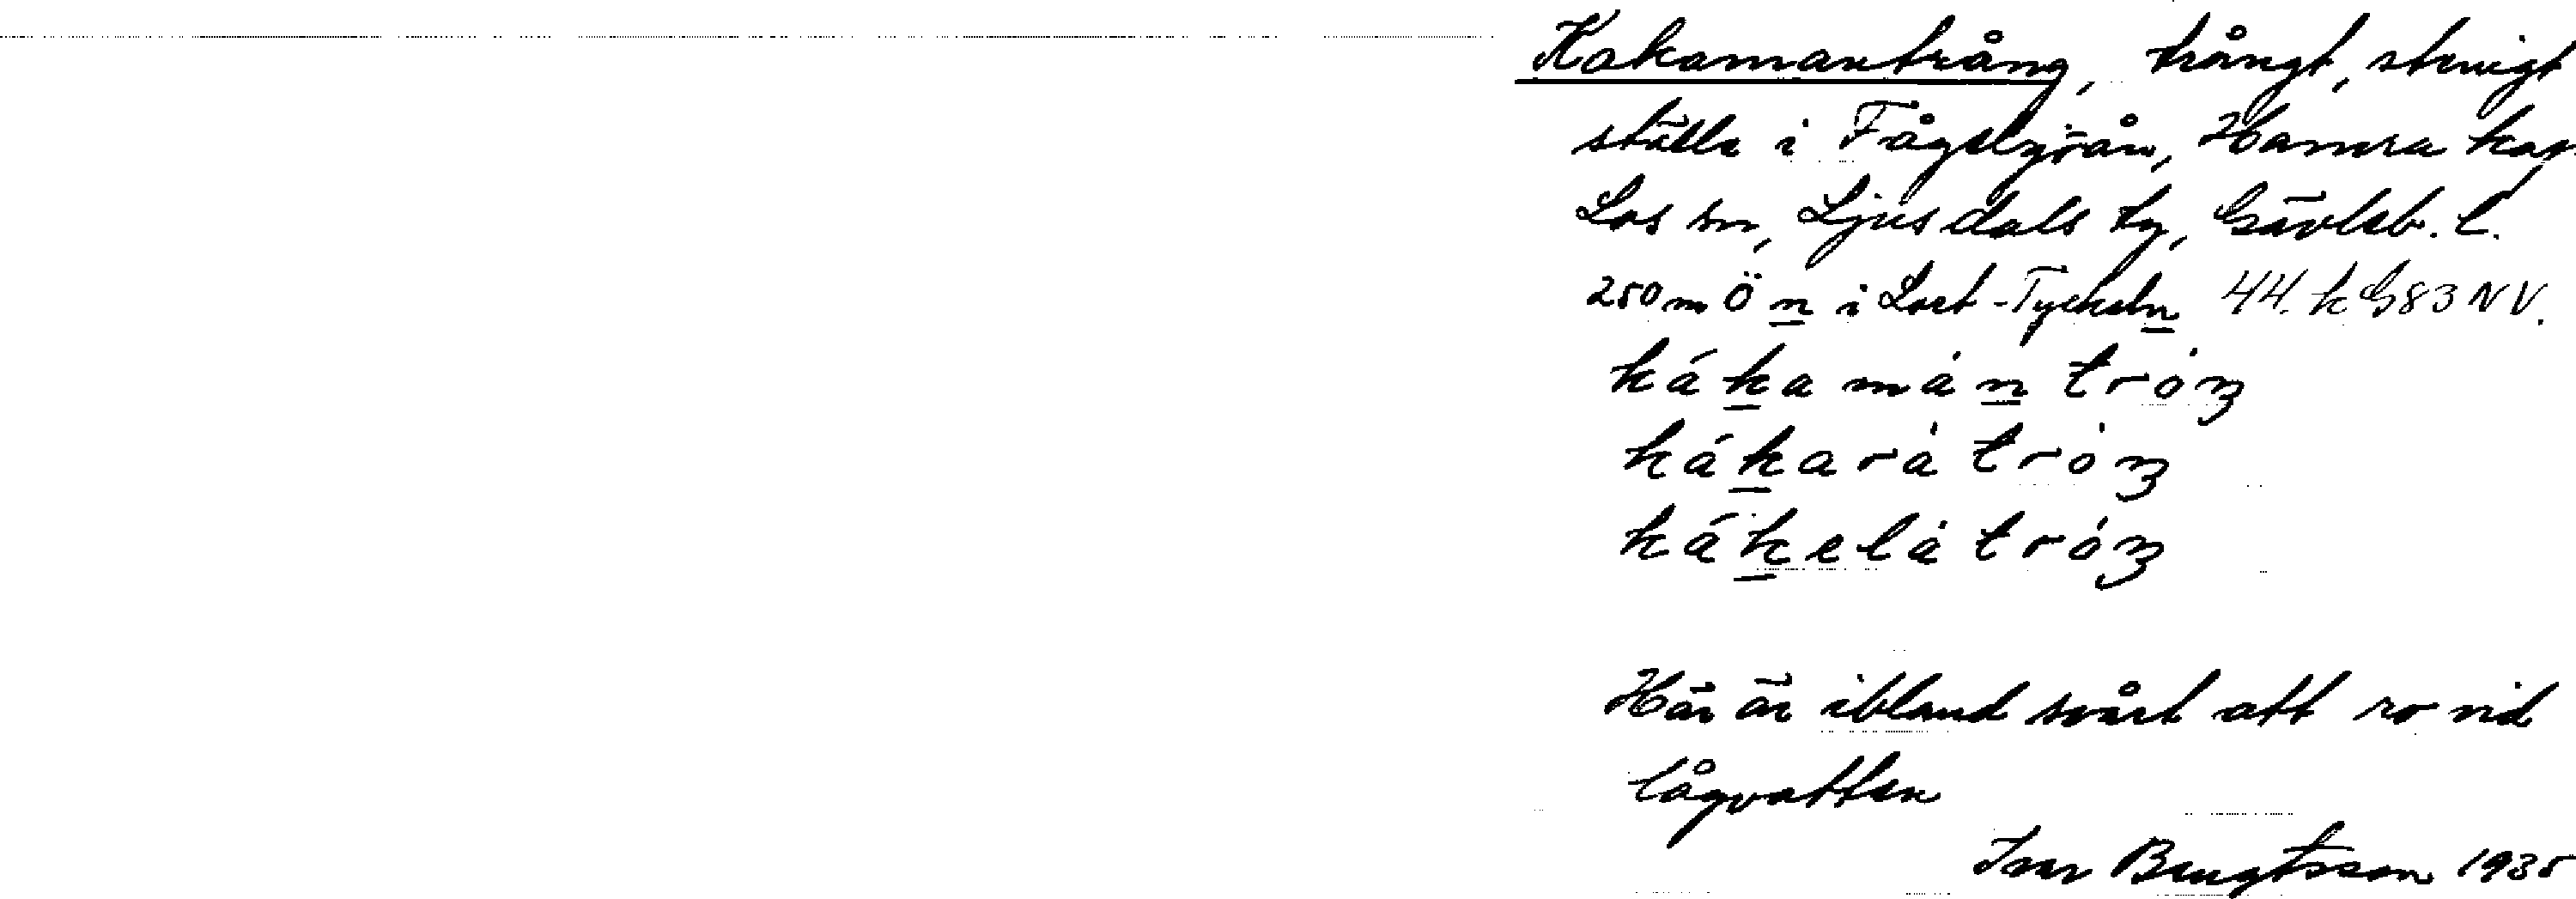 Kakamantrång, trångt, stenigt
ställe i Fågelsjöån, Hamra kap.
Los sn, Ljusdals tg, Gävleb. l.
250 m Ö n i Lort-Tyckeln 44. k G83 NV.
kákamàntròŋ
kákaràtròŋ
kákelàtróŋ
Här är ibland svårt att ro vid
lågvatten
Ivar Bengtsson 1935